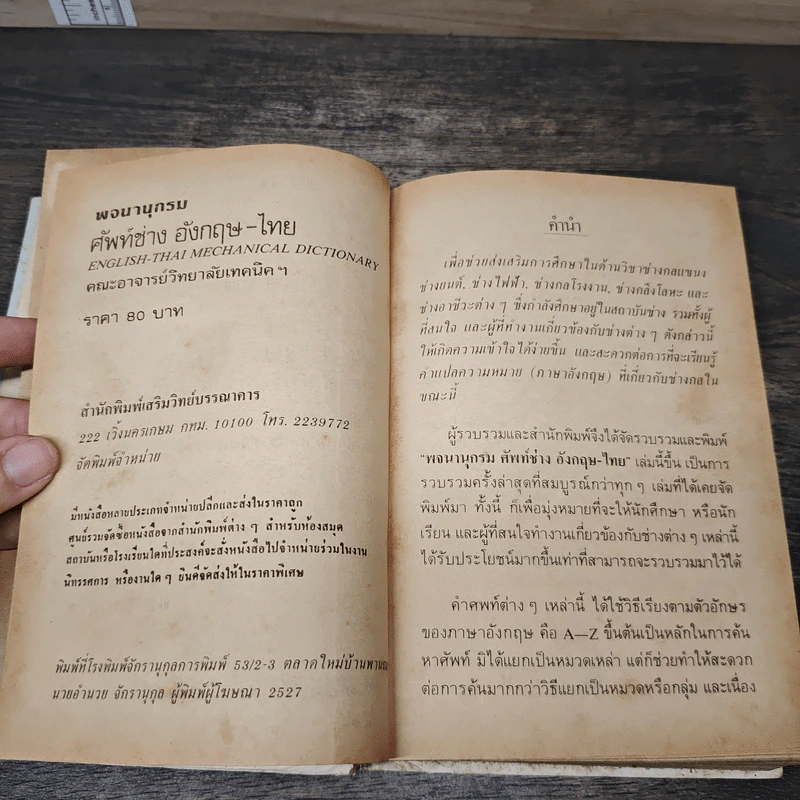 พจนานุกรม
ศัพท์ช่าง อังกฤษ-ไทย
ENGLISH-THAI MECHANICAL DICTIONARY
คณะอาจารย์วิทยาลัยเทคนิคฯ
ราคา 80 บาท
สำนักพิมพ์เสริมวิทย์บรรณาคาร
222 เวิ้งนครเกษม กทม. 10100 โทร. 2239772
จัดพิมพ์จำหน่าย
มีหนังสือหลายประเภทจำหน่ายปลีกและส่งในราคาถูก
ศูนย์รวมจัดซื้อหนังสือจากสำนักพิมพ์ต่าง ๆ สำหรับห้องสมุด
สถาบันหรือโรงเรียนใดที่ประสงค์จะสั่งหนังสือไปจำหน่ายร่วมในงาน
นิทรรศการ หรืองานใด ๆ ยินดีจัดส่งให้ในราคาพิเศษ
พิมพ์ที่โรงพิมพ์จักรานุกูลการพิมพ์ 53/2-3 ตลาดใหม่บ้านพานถม
นายอำนวย จักรานุกูล ผู้พิมพ์ผู้โฆษณา 2527
คำนำ
เพื่อช่วยส่งเสริมการศึกษาในด้านวิชาช่างกลแขนง
ช่างยนต์, ช่างไฟฟ้า, ช่างกลโรงงาน, ช่างกลึงโลหะ และ
ช่างอาชีวะต่าง ๆ ซึ่งกำลังศึกษาอยู่ในสถาบันช่าง รวมทั้งผู้
ที่สนใจ และผู้ที่ทำงานเกี่ยวข้องกับช่างต่าง ๆ ดังกล่าวนี้
ให้เกิดความเข้าใจได้ง่ายขึ้น และสะดวกต่อการที่จะเรียนรู้
คำแปลความหมาย (ภาษาอังกฤษ) ที่เกี่ยวกับช่างกลใน
ขณะนี้
ผู้รวบรวมและสำนักพิมพ์จึงได้จัดรวบรวมและพิมพ์
"พจนานุกรม ศัพท์ช่าง อังกฤษ-ไทย" เล่มนี้ขึ้น เป็นการ
รวบรวมครั้งล่าสุดที่สมบูรณ์กว่าทุก ๆ เล่มที่ได้เคยจัด
พิมพ์มา ทั้งนี้ ก็เพื่อมุ่งหมายที่จะให้นักศึกษา หรือนัก
เรียน และผู้ที่สนใจทำงานเกี่ยวข้องกับช่างต่าง ๆ เหล่านี้
ได้รับประโยชน์มากขึ้นเท่าที่สามารถจะรวบรวมมาไว้ได้
คำศัพท์ต่าง ๆ เหล่านี้ ได้ใช้วิธีเรียงตามตัวอักษร
ของภาษาอังกฤษ คือ A—Z ขึ้นต้นเป็นหลักในการค้น
หาศัพท์ มิได้แยกเป็นหมวดเหล่า แต่ก็ช่วยทำให้สะดวก
ต่อการค้นมากกว่าวิธีแยกเป็นหมวดหรือกลุ่ม และเนื่อง